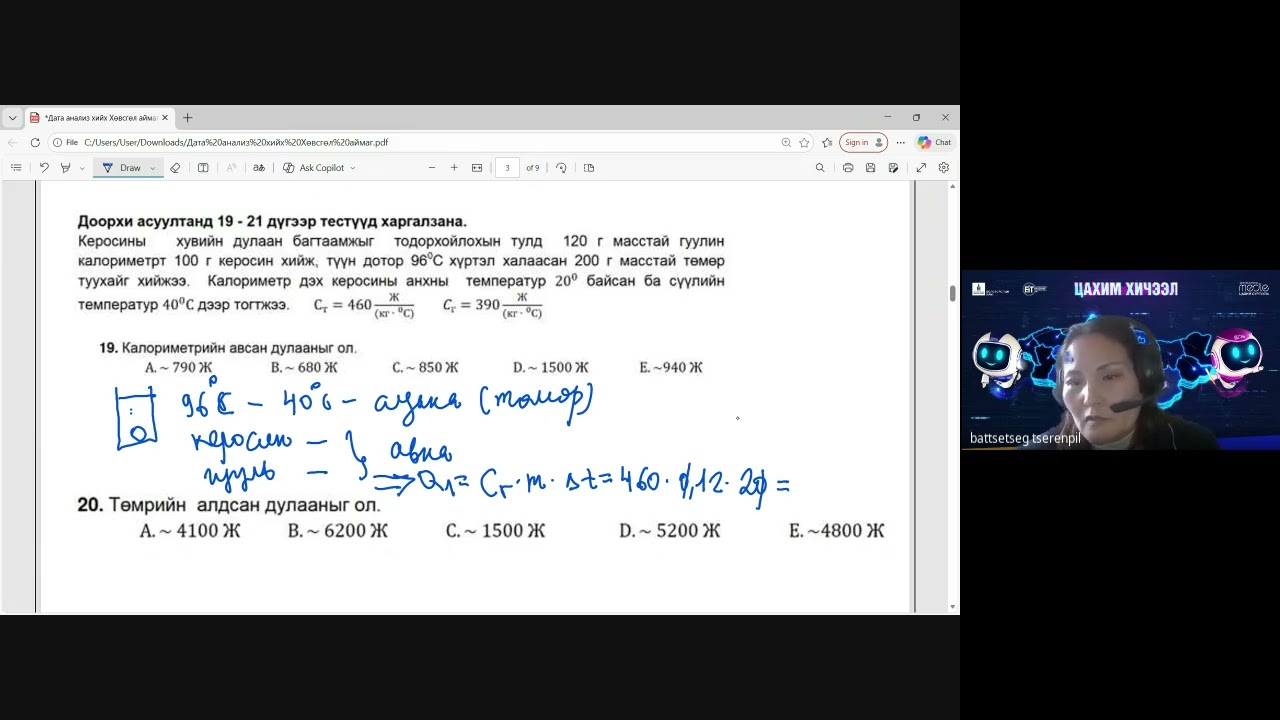 *Дата анализ хийх Хөвсгөл аймаг
File C:/Users/User/Downloads/Дата%20анализ%20хийх%20Хөвсгөл%20аймаг.pdf Sign in Chat
Draw Ask Copilot 3 of 9
Доорхи асуултанд 19 - 21 дүгээр тестүүд харгалзана.
Керосины хувийн дулаан багтаамжыг тодорхойлохын тулд 120 г масстай гуулин
калориметрт 100 г керосин хийж, түүн дотор 96⁰C хүртэл халаасан 200 г масстай төмөр
туухайг хийжээ. Калориметр дэх керосины анхны температур 20⁰ байсан ба сүүлийн
температур 40⁰C дээр тогтжээ. Cт = 460 Ж/(кг · ⁰C) Cг = 390 Ж/(кг · ⁰C)
19. Калориметрийн авсан дулааныг ол.
A. ~ 790 Ж B. ~ 680 Ж C. ~ 850 Ж D. ~ 1500 Ж E. ~940 Ж
96⁰C – 40⁰C – алдана (төмөр)
керосин – авна
гууль –
=> Qл = Cг · m · Δt = 460 · 0,12 · 20 =
20. Төмрийн алдсан дулааныг ол.
A. ~ 4100 Ж B. ~ 6200 Ж C. ~ 1500 Ж D. ~ 5200 Ж E. ~4800 Ж
ЦАХИМ ХИЧЭЭЛ
battsetseg tserenpil